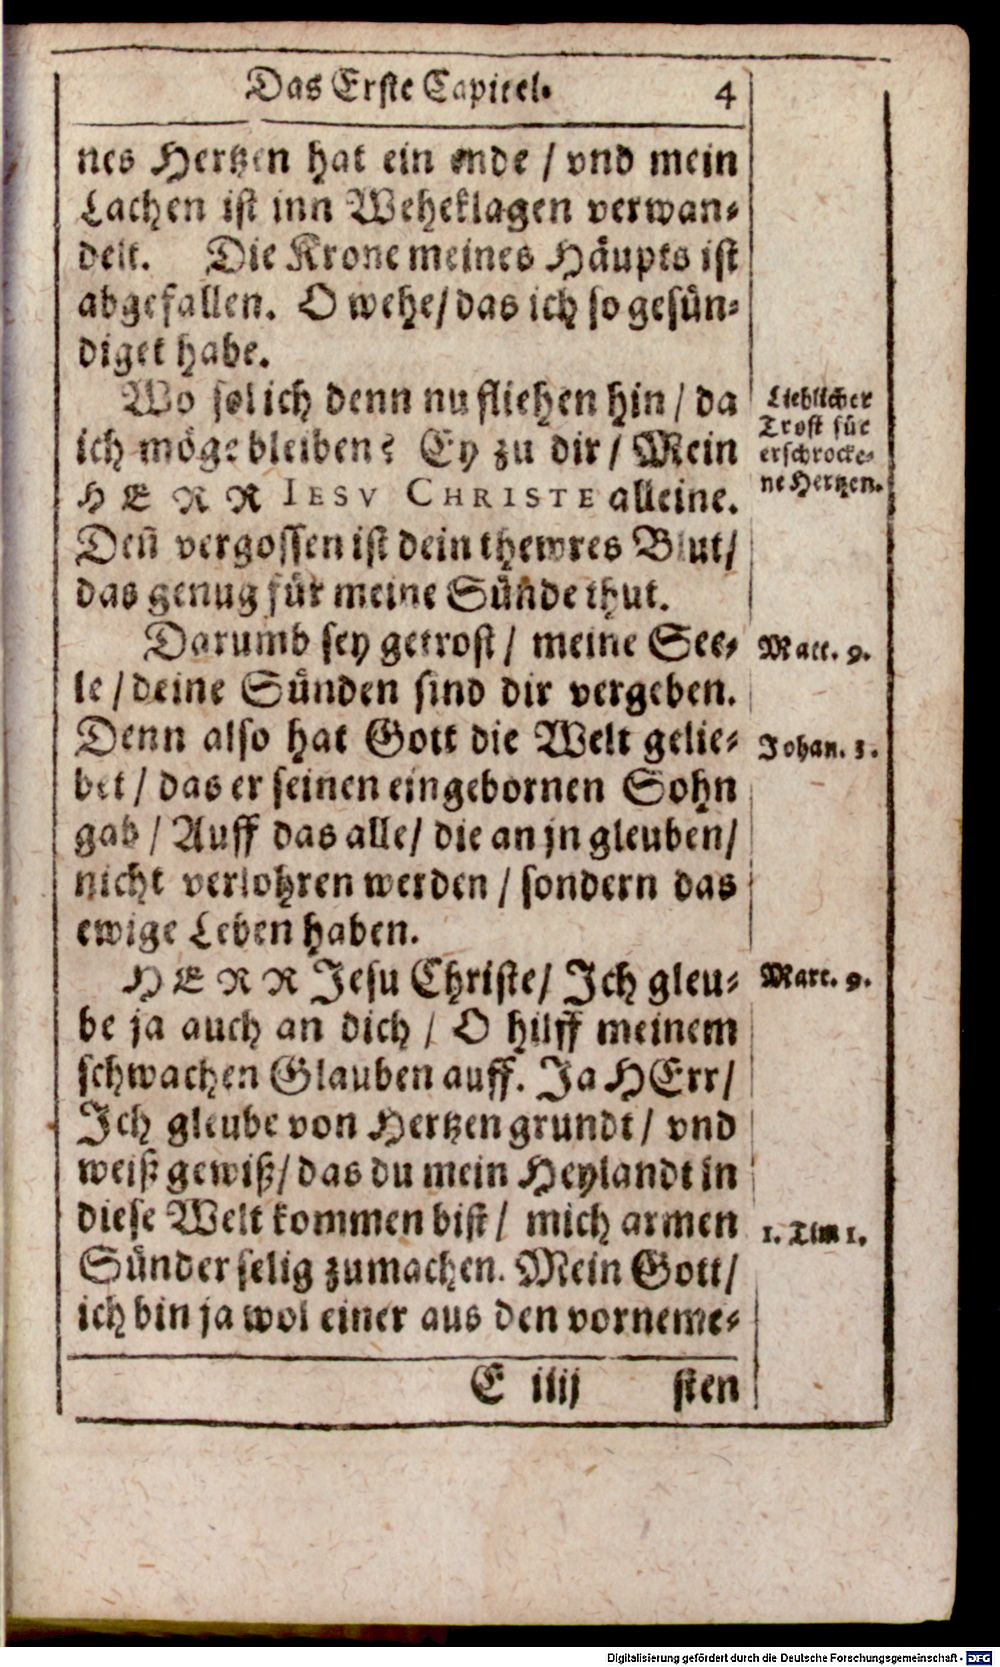 Das Erste Capitel. 4
nes Hertzen hat ein ende / vnd mein
Lachen ist inn Weheklagen verwan-
delt. Die Krone meines Häupts ist
abgefallen. O wehe / das ich so gesün-
diget habe.
Wo sol ich denn nu fliehen hin / da
ich möge bleiben? Ey zu dir / Mein
HERR IESV CHRISTE alleine.
Deñ vergossen ist dein thewres Blut /
das genug für meine Sünde thut.
Lieblicher
Trost für
erschrocke-
ne Hertzen.
Darumb sey getrost / meine See-
le / deine Sünden sind dir vergeben.
Denn also hat Gott die Welt gelie-
bet / das er seinen eingebornen Sohn
gab / Auff das alle / die an jn gleuben /
nicht verlohren werden / sondern das
ewige Leben haben.
Matt. 9.
Johan. 3.
HERR Jesu Christe / Ich gleu-
be ja auch an dich / O hilff meinem
schwachen Glauben auff. Ja HErr /
Ich gleube von Hertzen grundt / vnd
weiß gewiß / das du mein Heylandt in
diese Welt kommen bist / mich armen
Sünder selig zumachen. Mein Gott /
ich bin ja wol einer aus den vorneme-
Marc. 9.
1. Tim 1.
E iiij sten
Digitalisierung gefördert durch die Deutsche Forschungsgemeinschaft - DFG